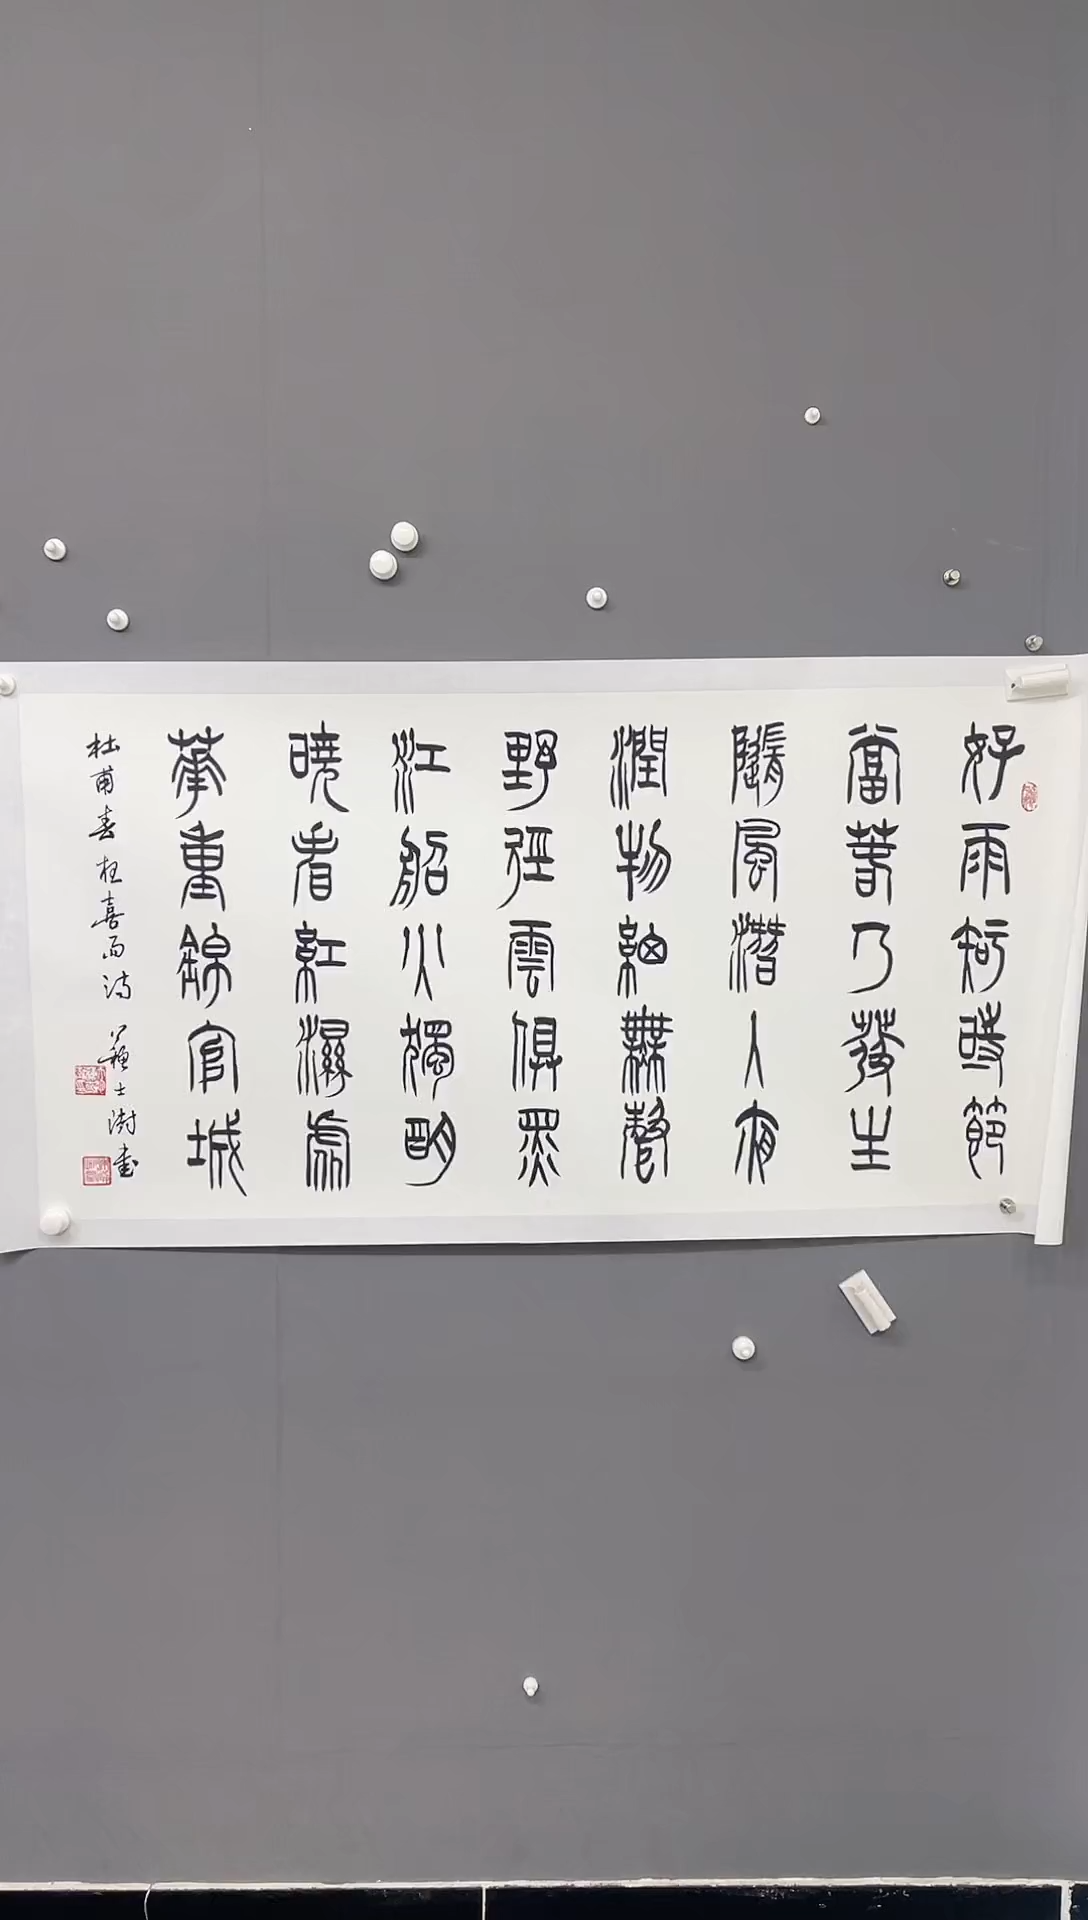 好雨知時節
當春乃發生
隨風潛入夜
潤物細無聲
野徑雲俱黑
江船火獨明
曉看紅濕處
華重錦官城
杜甫春夜喜雨詩 蘇士澍書